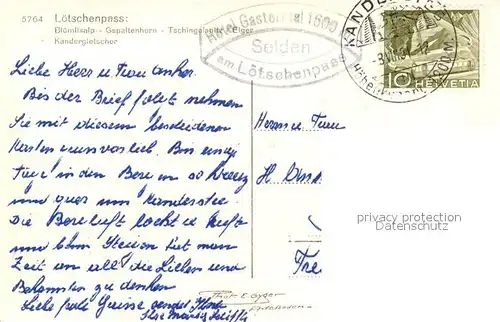 5764 Lötschenpass:
Blümlisalp - Gspaltenhorn - Tschingelspitz - Eiger
Kandergletscher
Hotel Gasterntal 1600
Selden
am Lötschenpass
KANDERSTEG
1200 M.
10
HELVETIA
Liebe Herr u. Frau
Bis der Brief folgt nehmen
Sie mit diesem bescheidenen
Karten vorlieb. Bin einige
Tage in den Bergen so kreuz
und quer um Kandersteg
Die Bergluft lockt u. ruft
und beim Steigen hat man
Zeit an all die Lieben und
Bekannten zu denken
Liebe Grüsse sendet Ihnen
Herrn u. Frau
H.
privacy protection
Datenschutz
Phot. E. Gyger
Adelboden